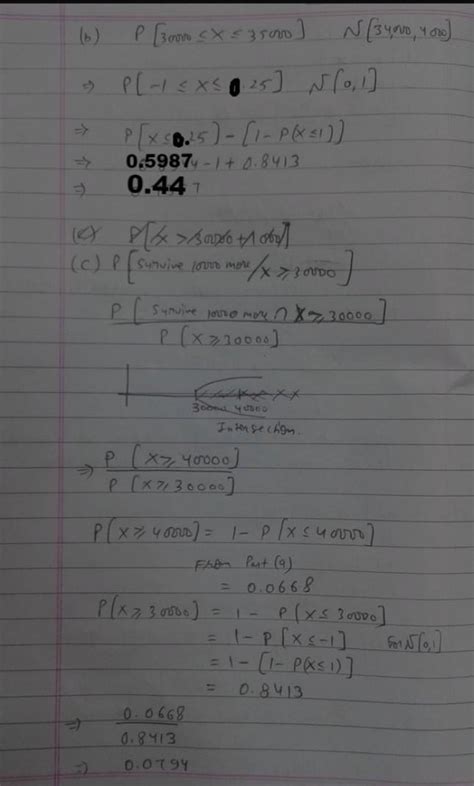 (b) P[30000 ≤ X ≤ 35000] N[34000, 4000]
⇒ P[-1 ≤ X ≤ 0.25] N[0,1]
⇒ P[X ≤ 0.25] - [1 - P(X ≤ 1)]
⇒ 0.5987 - 1 + 0.8413
⇒ 0.44
(c) P[X > 30000 + 1000]
(C) P[Survive 10000 more / X ≥ 30000]
P[Survive 10000 more ∩ X ≥ 30000]
P[X ≥ 30000]
30000 40000
Intersection.
⇒ P[X ≥ 40000]
P[X ≥ 30000]
P[X ≥ 40000] = 1 - P[X ≤ 40000]
From Part (a)
= 0.0668
P[X ≥ 30000] = 1 - P[X ≤ 30000]
= 1 - P[X ≤ -1] for N[0,1]
= 1 - [1 - P(X ≤ 1)]
= 0.8413
⇒ 0.0668
0.8413
⇒ 0.0794